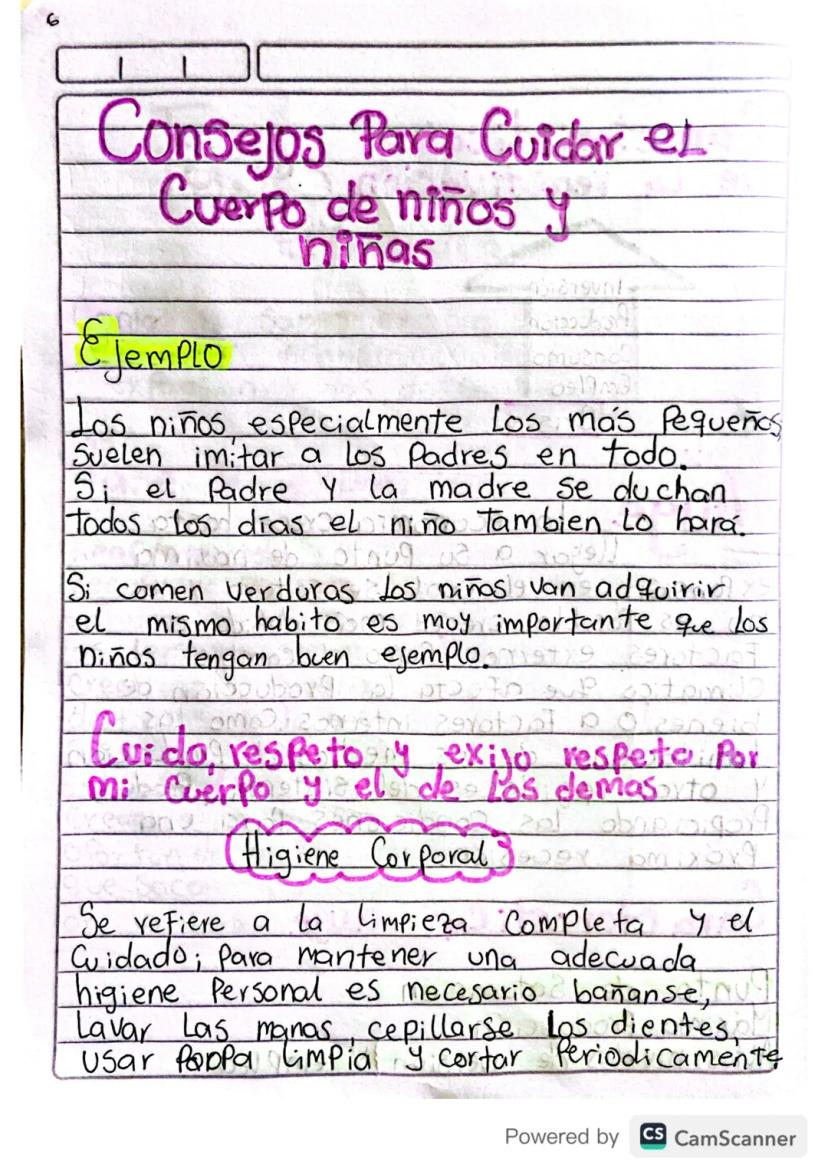 6
Consejos Para Cuidar el
Cuerpo de niños y
niñas
Ejemplo
Los niños, especialmente Los más Pequeños
Suelen imitar a los Padres en todo.
Si el Padre y la madre se duchan
todos los días el niño Tambien Lo hará.
Si comen verduras los niños van adquirir
el mismo habito es muy importante que los
niños tengan buen ejemplo.
Cuido, respeto y exijo respeto Por
mi Cuerpo y el de Los demas
Higiene Corporal
Se refiere a la Limpieza Completa y el
Cuidado; Para mantener una adecuada
higiene Personal es necesario bañanse,
Lavar Las manos, cepillarse Los dientes,
usar limpia y cortar Periodicamente
Powered by CS CamScanner